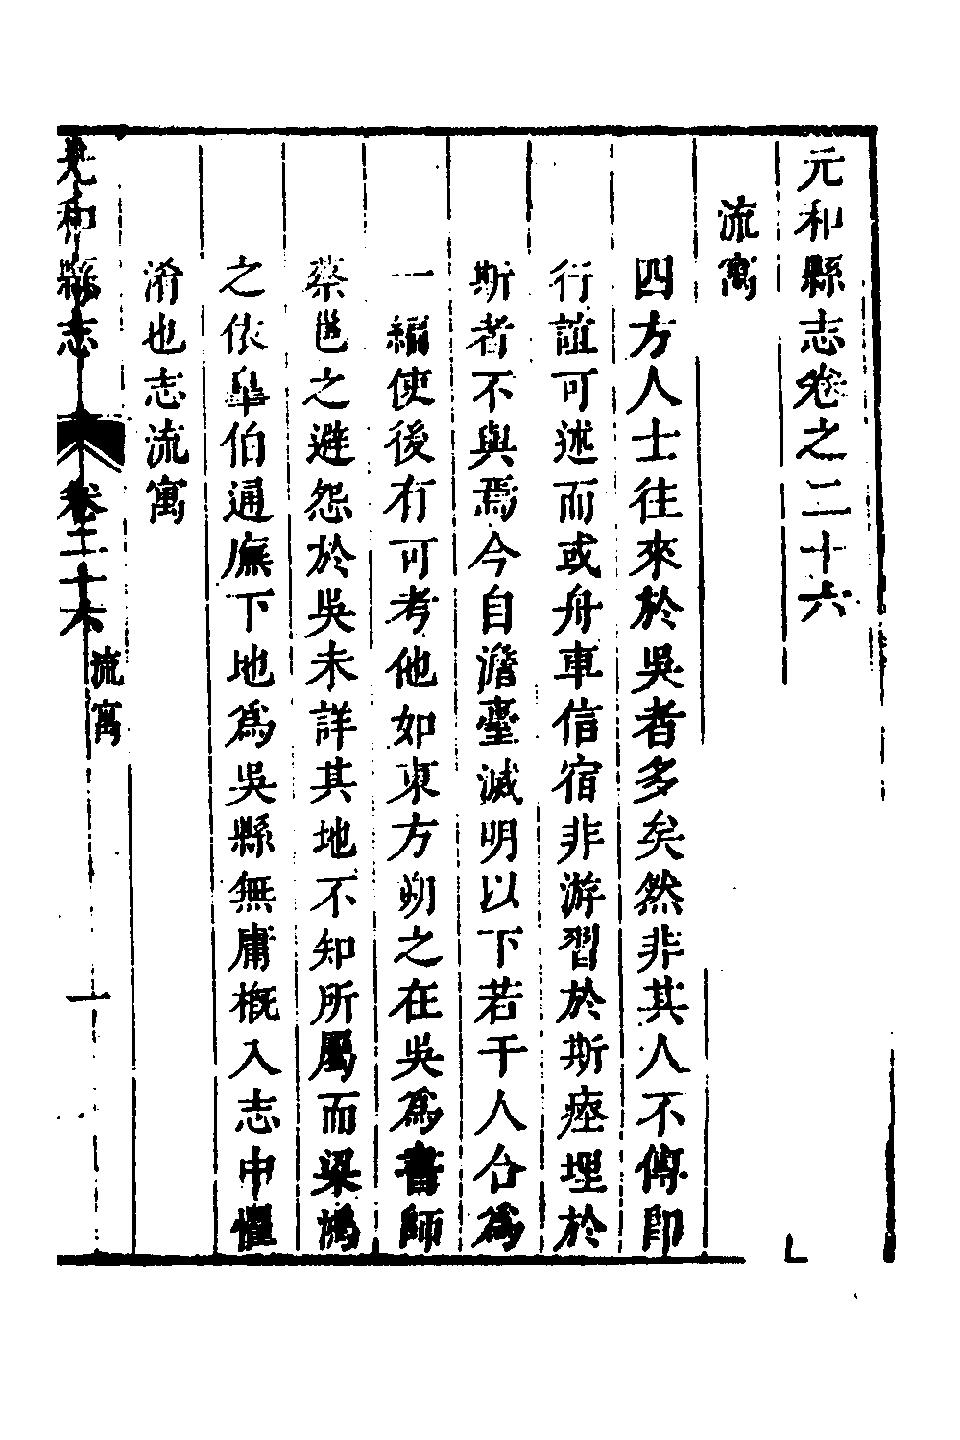 元和縣志卷之二十六
流寓
四方人士往來於吳者多矣然非其人不傳即
行誼可述而或舟車信宿非游習於斯瘞埋於
斯者不與焉今自澹臺滅明以下若干人合為
一編使後有可考他如東方朔之在吳為書師
蔡邕之避怨於吳未詳其地不知所屬而梁鴻
之依臯伯通廡下地為吳縣無庸概入志中懼
淆也志流寓
元和縣志 卷二十六 流寓 一